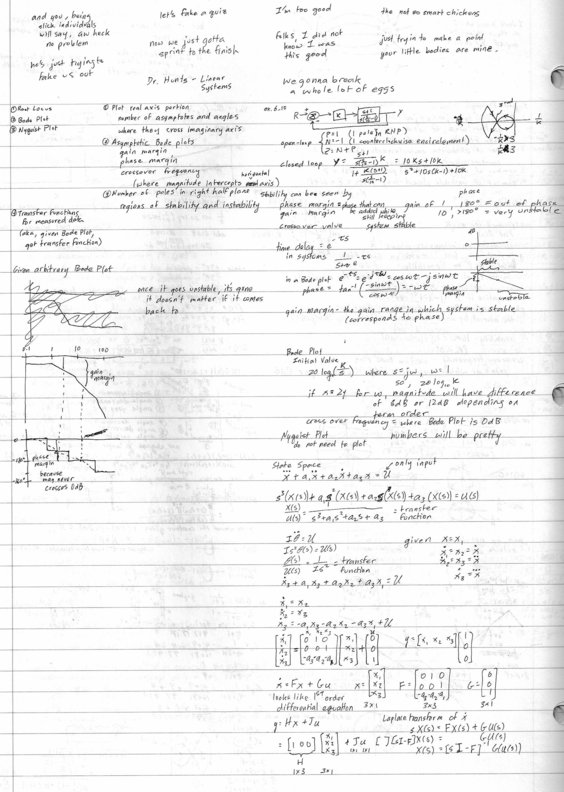 and you, being
slick individuals
will say, aw heck
no problem
he's just trying to
fake us out
let's fake a quiz
now we just gotta
sprint to the finish
Dr. Hunts - Linear
Systems
I'm too good
folks, I did not
know I was
this good
We gonna break
a whole lot of eggs
the not so smart chickens
just tryin to make a point
your little bodies are mine.
① Root Locus
② Bode Plot
③ Nyquist Plot
① Plot real axis portion
number of asymptotes and angles
where they cross imaginary axis
② Asymptotic Bode plots
gain margin
phase margin
crossover frequency
(where magnitude intercepts horizontal axis)
③ Number of poles in right half plane
regions of stability and instability
④ Transfer Functions
for measured data
(aka, given Bode Plot,
got transfer function)
ex. 6.15
R
K
Y
open loop
P=1 (1 pole in RHP)
N=-1 (1 counterclockwise encirclement)
Z=N+P
closed loop
= 10Ks+10K
stability can be seen by
phase margin = phase that can
be added while
still keeping
system stable
gain margin
crossover value
phase
gain of 1, 180° = out of phase
10, >180° = very unstable
time delay = e^-τs
in systems
in a Bode plot e^-τs = e^-jτω = cosωτ - j sinωτ
phase = tan⁻¹(-sinωτ/cosωτ) = -ωτ
stable
phase
margin
unstable
gain margin - the gain range in which system is stable
(corresponds to phase)
Given arbitrary Bode Plot
once it goes unstable, it's gone
it doesn't matter if it comes
back to
.1 1 10 100
gain
margin
0
-180°
phase
margin
because
mag never
crosses 0dB
Bode Plot
Initial Value
20 log(K/s) where s=jω, ω=1
so, 20 log₁₀ K
if x=2y for ω, magnitude will have difference
of 6dB or 12dB depending on
term order
cross over frequency = where Bode Plot is 0dB
Nyquist Plot
do not need to plot
numbers will be pretty
State Space
only input
s³(X(s))+a₁s²(X(s))+a₂s(X(s))+a₃(X(s))=U(s)
X(s)/U(s) = 1/(s³+a₁s²+a₂s+a₃) = transfer
function
Iθ̈=U
Is²θ(s)=U(s)
θ(s)/U(s) = 1/Is² = transfer
function
given x=x₁
ẋ₁=x₂=ẋ
ẋ₂=x₃=ẍ
ẋ₃+a₁x₃+a₂x₂+a₃x₁=U
ẋ₁=x₂
ẋ₂=x₃
ẋ₃=-a₁x₃-a₂x₂-a₃x₁+U
ẋ=Fx+Gu
looks like 1st order
differential equation
3x1
3x3
3x1
y=Hx+Ju
Laplace transform of ẋ
sX(s)=FX(s)+GU(s)
[sI-F]X(s)=GU(s)
X(s)=[sI-F]⁻¹GU(s)
H
1x3
3x1